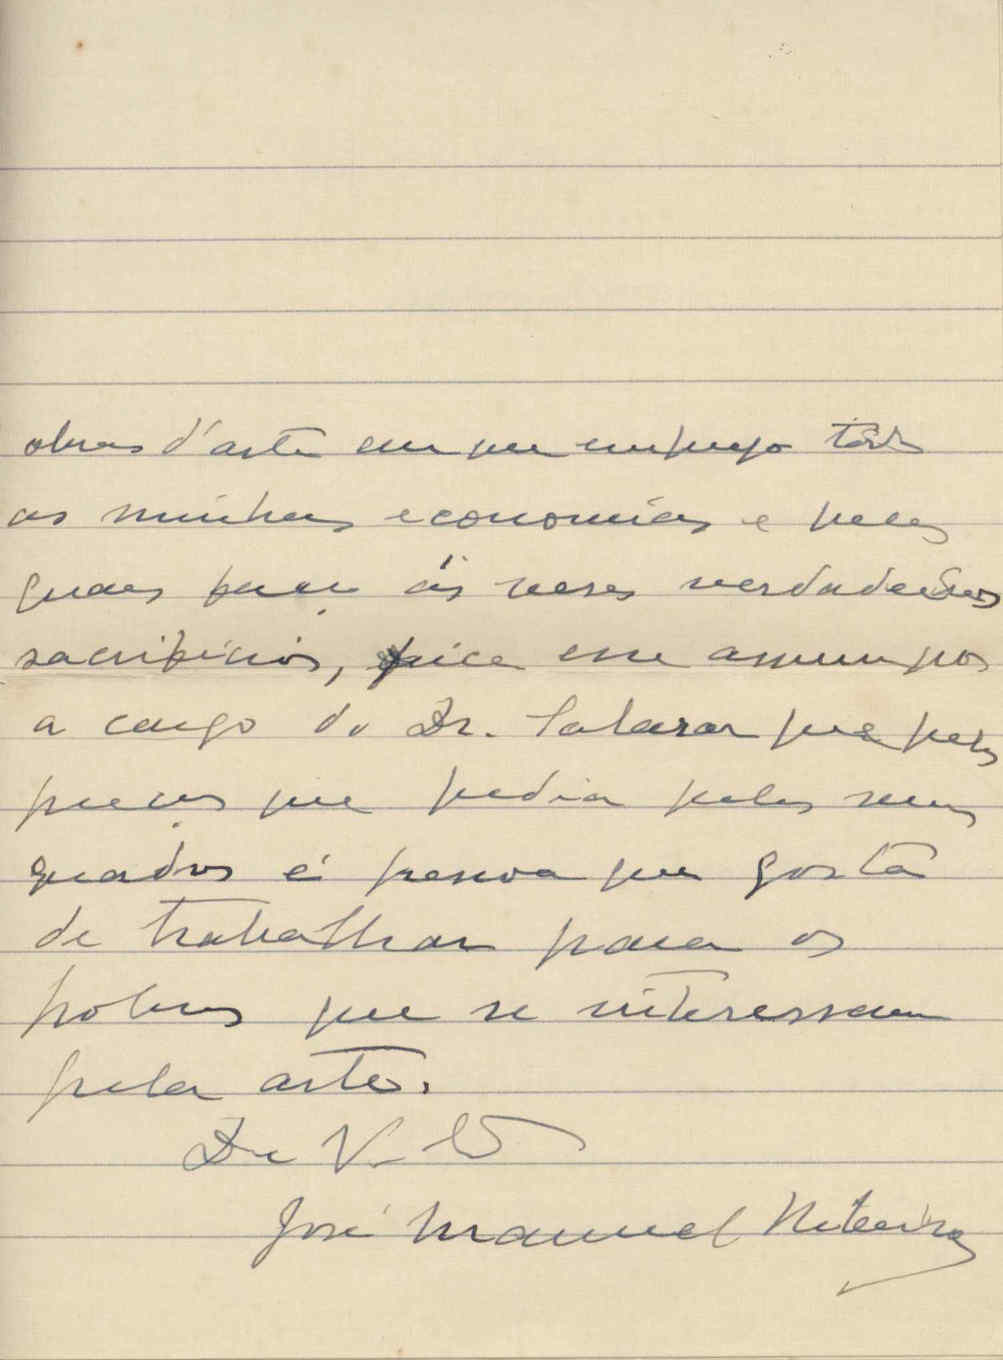 obras d'arte em que emprego todas
as minhas economias e pelas
quaes passo ás vezes verdadeiros
sacrificios, fica esse assumpto
a cargo do Dr. Salazar que pelos
preços que pedia pelos seus
quadros é pessoa que gosta
de trabalhar para os
pobres que se interessam
pela arte.
De V.
José Manuel Ribeiro